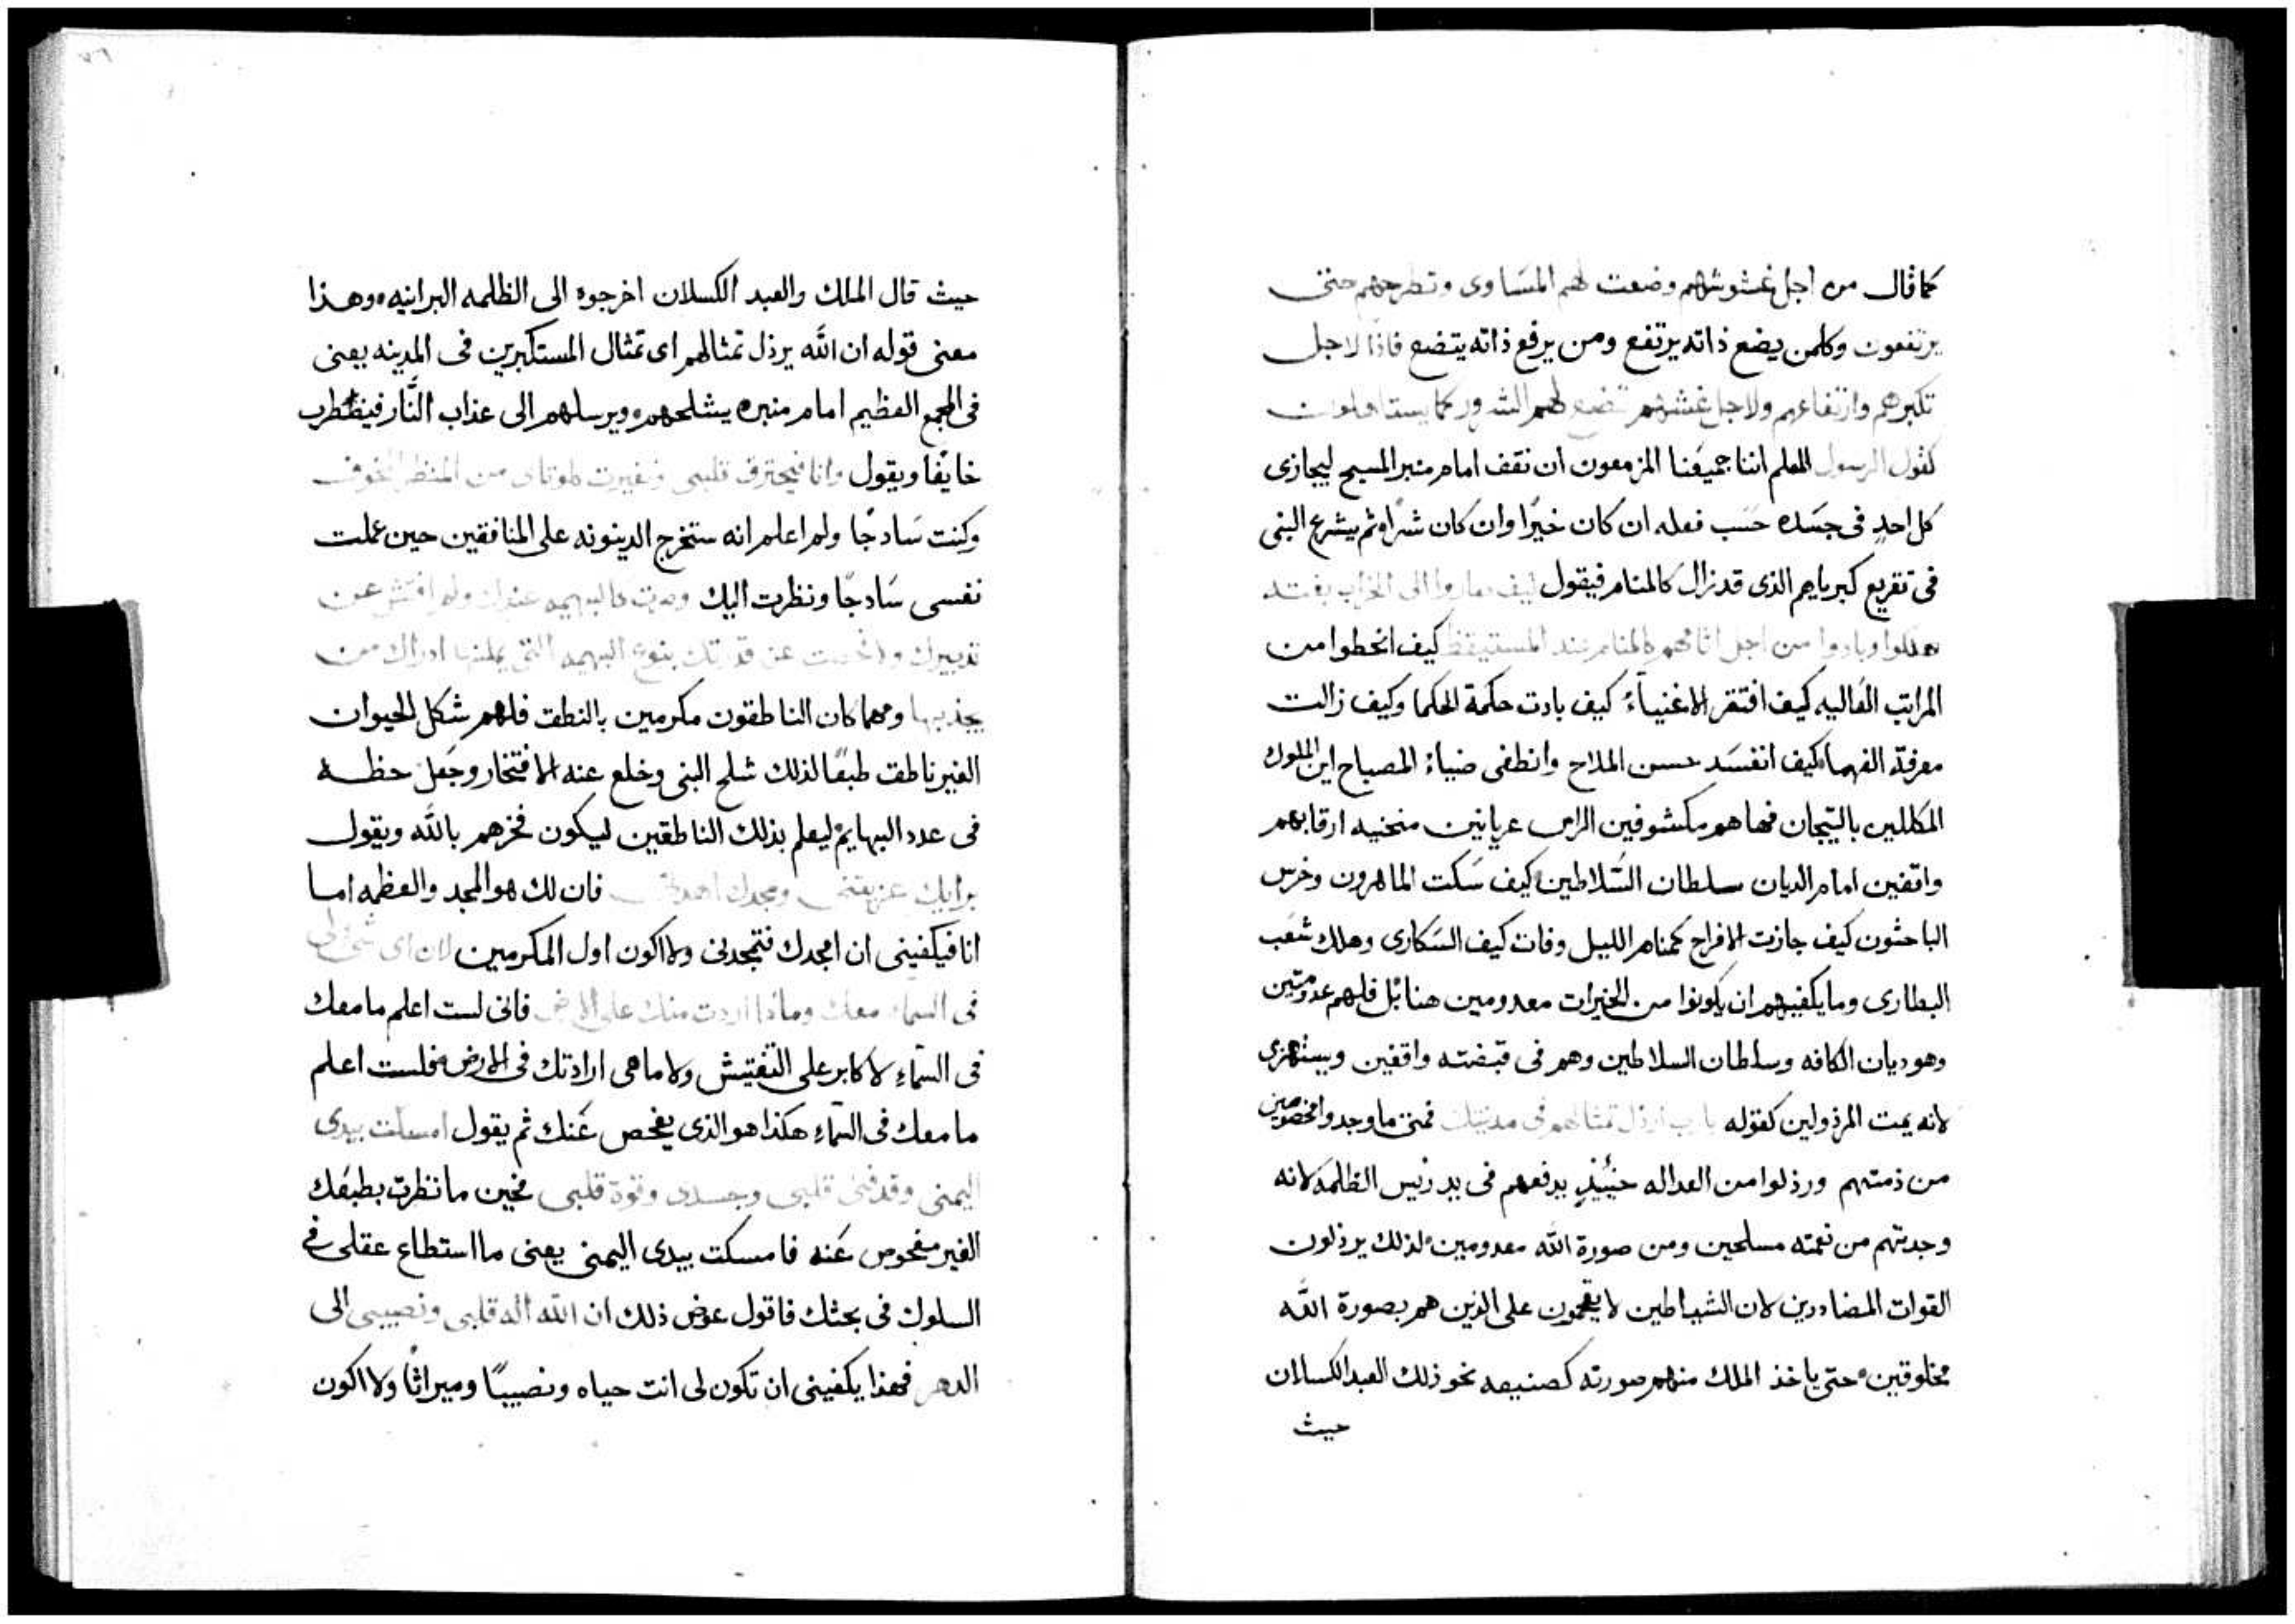 كما قال من اجل غشوشهم وضعت لهم المسَاوى وتطرحهم حين
يرتفعون وكلمن يضع ذاته يرتفع ومن يرفع ذاته يتضع فاذا لاجل
تكبرهم وارتفاعهم ولاجل غشهم تضع لهم الشرور كما يستاهلون
كقول الرسول المعلم اننا جميعَنا المزمعون ان نقف امام منبر المسيح ليجازى
كل احدٍ فى جسَده حسَب فعله ان كان خيرًا وان كان شرًا ثم يشرع النبى
فى تقريع كبرياهم الذى قد زال كالمنام فيقول كيف صاروا الى الخراب بغتة
هلكوا وبادوا من اجل اثامهم كالمنام عند المستيقظ كيف انحطوا من
المراتب العَاليه كيف افتقر الاغنياءُ كيف بادت حكمة الحكما وكيف زالت
معرفة الفهما كيف انفسَد حسن الملاح وانطفى ضياءُ المصباح اين الملوك
المكللين بالتيجان فها هم مكشوفين الراس عريانين منحنيه ارقابهم
واقفين امام الديان سلطان السَّلاطين كيف سَكت الماهرون وخرس
الباحثون كيف جازت الافراح كمنام الليل وفات كيف السَكارى وهلك شعَب
البطارى وما يكفيهم ان يكونوا من الخيرات معدومين هنا بل فلهم عدو متين
وهو ديان الكافه وسلطان السلاطين وهم فى قبضته واقفين ويستهزى
لانه يمت المرذولين كقوله يا رب ارذل تمثالهم فى مدينتك فمتى ما وجدوا مخصومين
من ذمتهم ورذلوا من العداله حينئذٍ يدفعهم فى يد رئيس الظلمه لانه
وجدتهم من نعمته مسلحين ومن صورة الله معدومين لذلك يرذلون
القوات المضاددين لان الشياطين لا يقحمون على الذين هم بصورة الله
مخلوقين حتى ياخذ الملك منهم صورته كصنيعه نحو ذلك العبد الكسلان
حيث
حيث قال الملك والعبد الكسلان اخرجوه الى الظلمه البرانيه وهذا
معنى قوله ان الله يرذل تمثالهم اى تمثال المستكبرين فى المدينه يعنى
فى المجمع العظيم امام منبره يشلحهم ويرسلهم الى عذاب النَّار فيضطرب
خايفًا ويقول وانا فيحترق قلبى وتغيرت كلوتاى من المنظر المخوف
وكنت سَادجًا ولم اعلم انه ستخرج الدينونه على المنافقين حين عملت
نفسى سَادجًا ونظرت اليك وصرت كالبهيمه عندك ولم افتش عن
تدبيرك ولا فحصت عن قدرتك بنوع البهيمه التى يمكنها ادراك من
يجذبها ومهما كان الناطقون مكرمين بالنطق فلهم شكل الحيوان
الغير ناطق طبعًا لذلك شلح النبى وخلع عنه الافتخار وجعَل حظه
فى عدد البهايم ليعلم بذلك الناطقين ليكون فخرهم بالله ويقول
برايك عزيتنى وبمجدك اهديتنى فان لك هو المجد والعظمه اما
انا فيكفينى ان امجدك فتمجدنى ولا اكون اول المكرمين لان اى شى لى
فى السماء معك وماذا اردت منك على الارض فانى لست اعلم ما معك
فى السَّماءِ لا كابر على التفتيش ولا ما هى ارادتك فى الارض فلست اعلم
ما معك فى السَّماءِ هكذا هو الذى يفحص عَنك ثم يقول امسكت بيدى
اليمنى وقد فنى قلبى وجسدى وقوة قلبى فحين ما نظرت بطبعَك
الغير مفحوص عَنه فامسكت بيدى اليمنى يعنى ما استطاع عقلى فى
السلوك فى بحثك فاقول عوض ذلك ان الله اله قلبى ونصيبى الى
الدهر فهذا يكفينى ان تكون لى انت حياه ونصيبًا وميراثًا ولا اكون